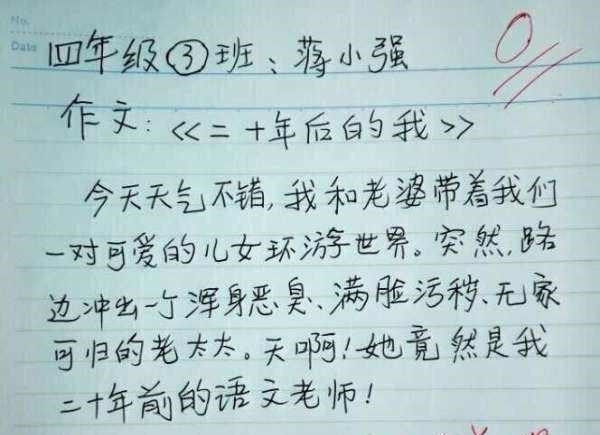 No.
Date
四年级③班：蒋小强
0
作文：《二十年后的我》
今天天气不错，我和老婆带着我们
一对可爱的儿女环游世界。突然，路
边冲出一个浑身恶臭、满脸污秽、无家
可归的老太太。天啊！她竟然是我
二十年前的语文老师！